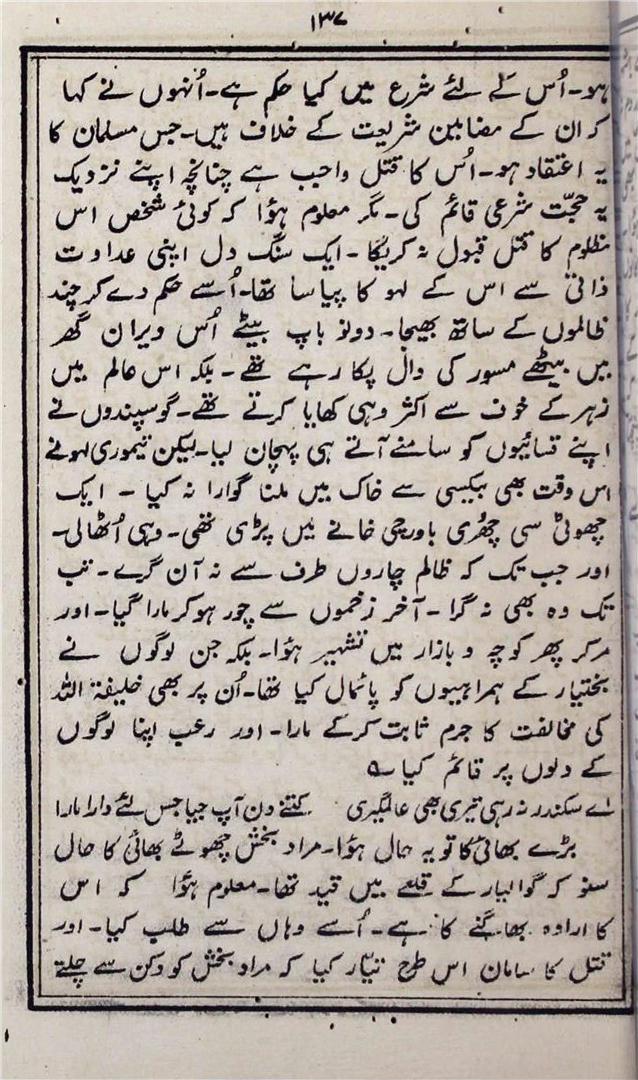 ۱۳۷
ہو۔ اُس کے لئے شرع میں کیا حکم ہے۔ اُنہوں نے کہا
کہ ان کے مضامین شریعت کے خلاف ہیں۔ جس مسلمان کا
یہ اعتقاد ہو۔ اُس کا قتل واجب ہے چنانچہ اپنے نزدیک
یہ حجّت شرعی قائم کی۔ مگر معلوم ہؤا کہ کوئی شخص اس
مظلوم کا قتل قبول نہ کریگا۔ ایک سنگ دل اپنی عداوت
ذاتی سے اس کے لہو کا پیاسا تھا۔ اُسے حکم دے کر چند
ظالموں کے ساتھ بھیجا۔ دونو باپ بیٹے اُس ویران گھر
میں بیٹھے مسور کی دال پکا رہے تھے۔ بلکہ اس عالم میں
زہر کے خوف سے اکثر وہی کھایا کرتے تھے۔ گوسپندوں نے
اپنے قسائیوں کو سامنے آتے ہی پہچان لیا۔ لیکن تیموری لہو نے
اس وقت بھی بیکسی سے خاک میں ملنا گوارا نہ کیا ۔ ایک
چھوٹی سی چھُری باورچی خانے میں پڑی تھی۔ وہی اُٹھالی۔
اور جب تک کہ ظالم چاروں طرف سے نہ آن گرے۔ تب
تک وہ بھی نہ گرا ۔ آخر زخموں سے چور ہوکر مارا گیا۔ اور
مرکر پھر کوچہ و بازار میں تشہیر ہؤا۔ بلکہ جن لوگوں نے
بختیار کے ہمراہیوں کو پائمال کیا تھا۔ اُن پر بھی خلیفۃ اللہ
کی مخالفت کا جرم ثابت کرکے مارا۔ اور رعب اپنا لوگوں
کے دلوں پر قائم کیا ۔
اے سکندر نہ رہی تیری بھی عالمگیری کتنے دن آپ جیا جس لئے دارا مارا
بڑے بھائی کا تو یہ حال ہؤا۔ مراد بخش چھوٹے بھائی کا حال
سنو کہ گوالیار کے قلعے میں قید تھا۔ معلوم ہؤا کہ اس
کا ارادہ بھاگنے کا ہے۔ اُسے وہاں سے طلب کیا۔ اور
قتل کا سامان اس طرح تیّار کیا کہ مراد بخش کو دکن سے چلتے